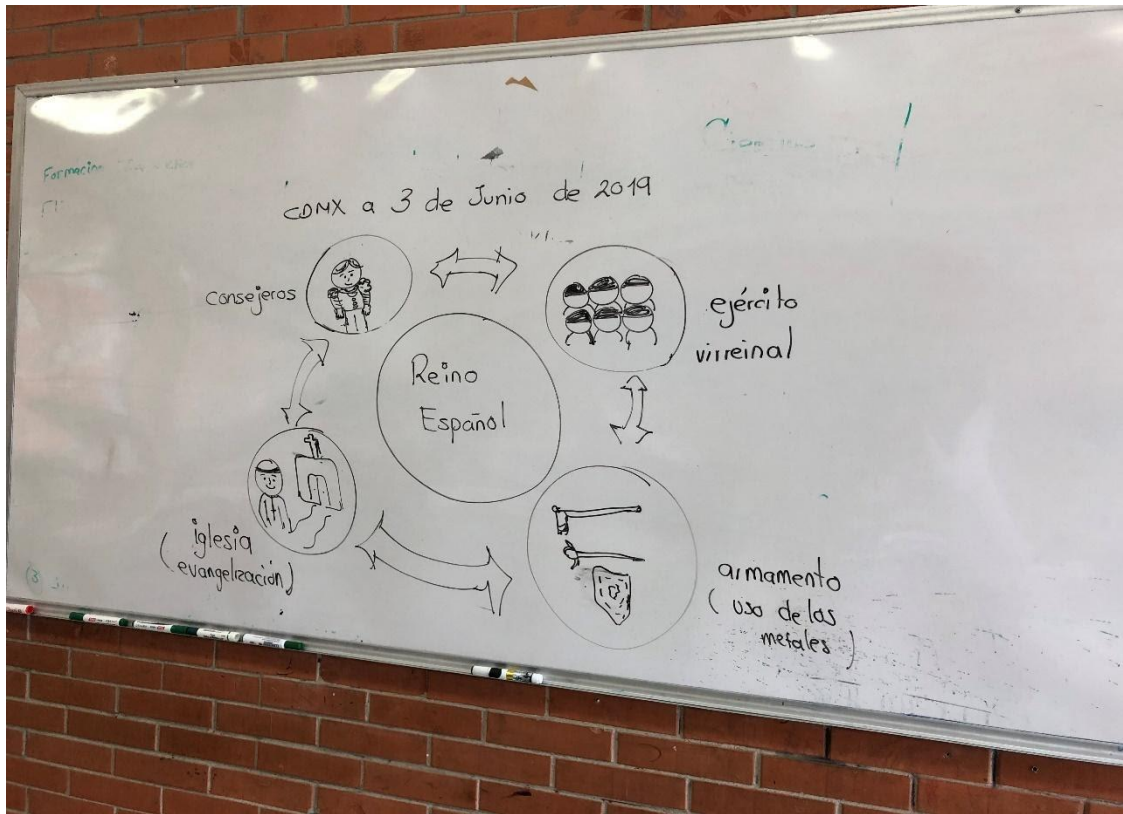 Formacion
CDMX a 3 de Junio de 2019
consejeros
ejército
virreinal
Reino
Español
iglesia
(evangelización)
armamento
(uso de los
metales)